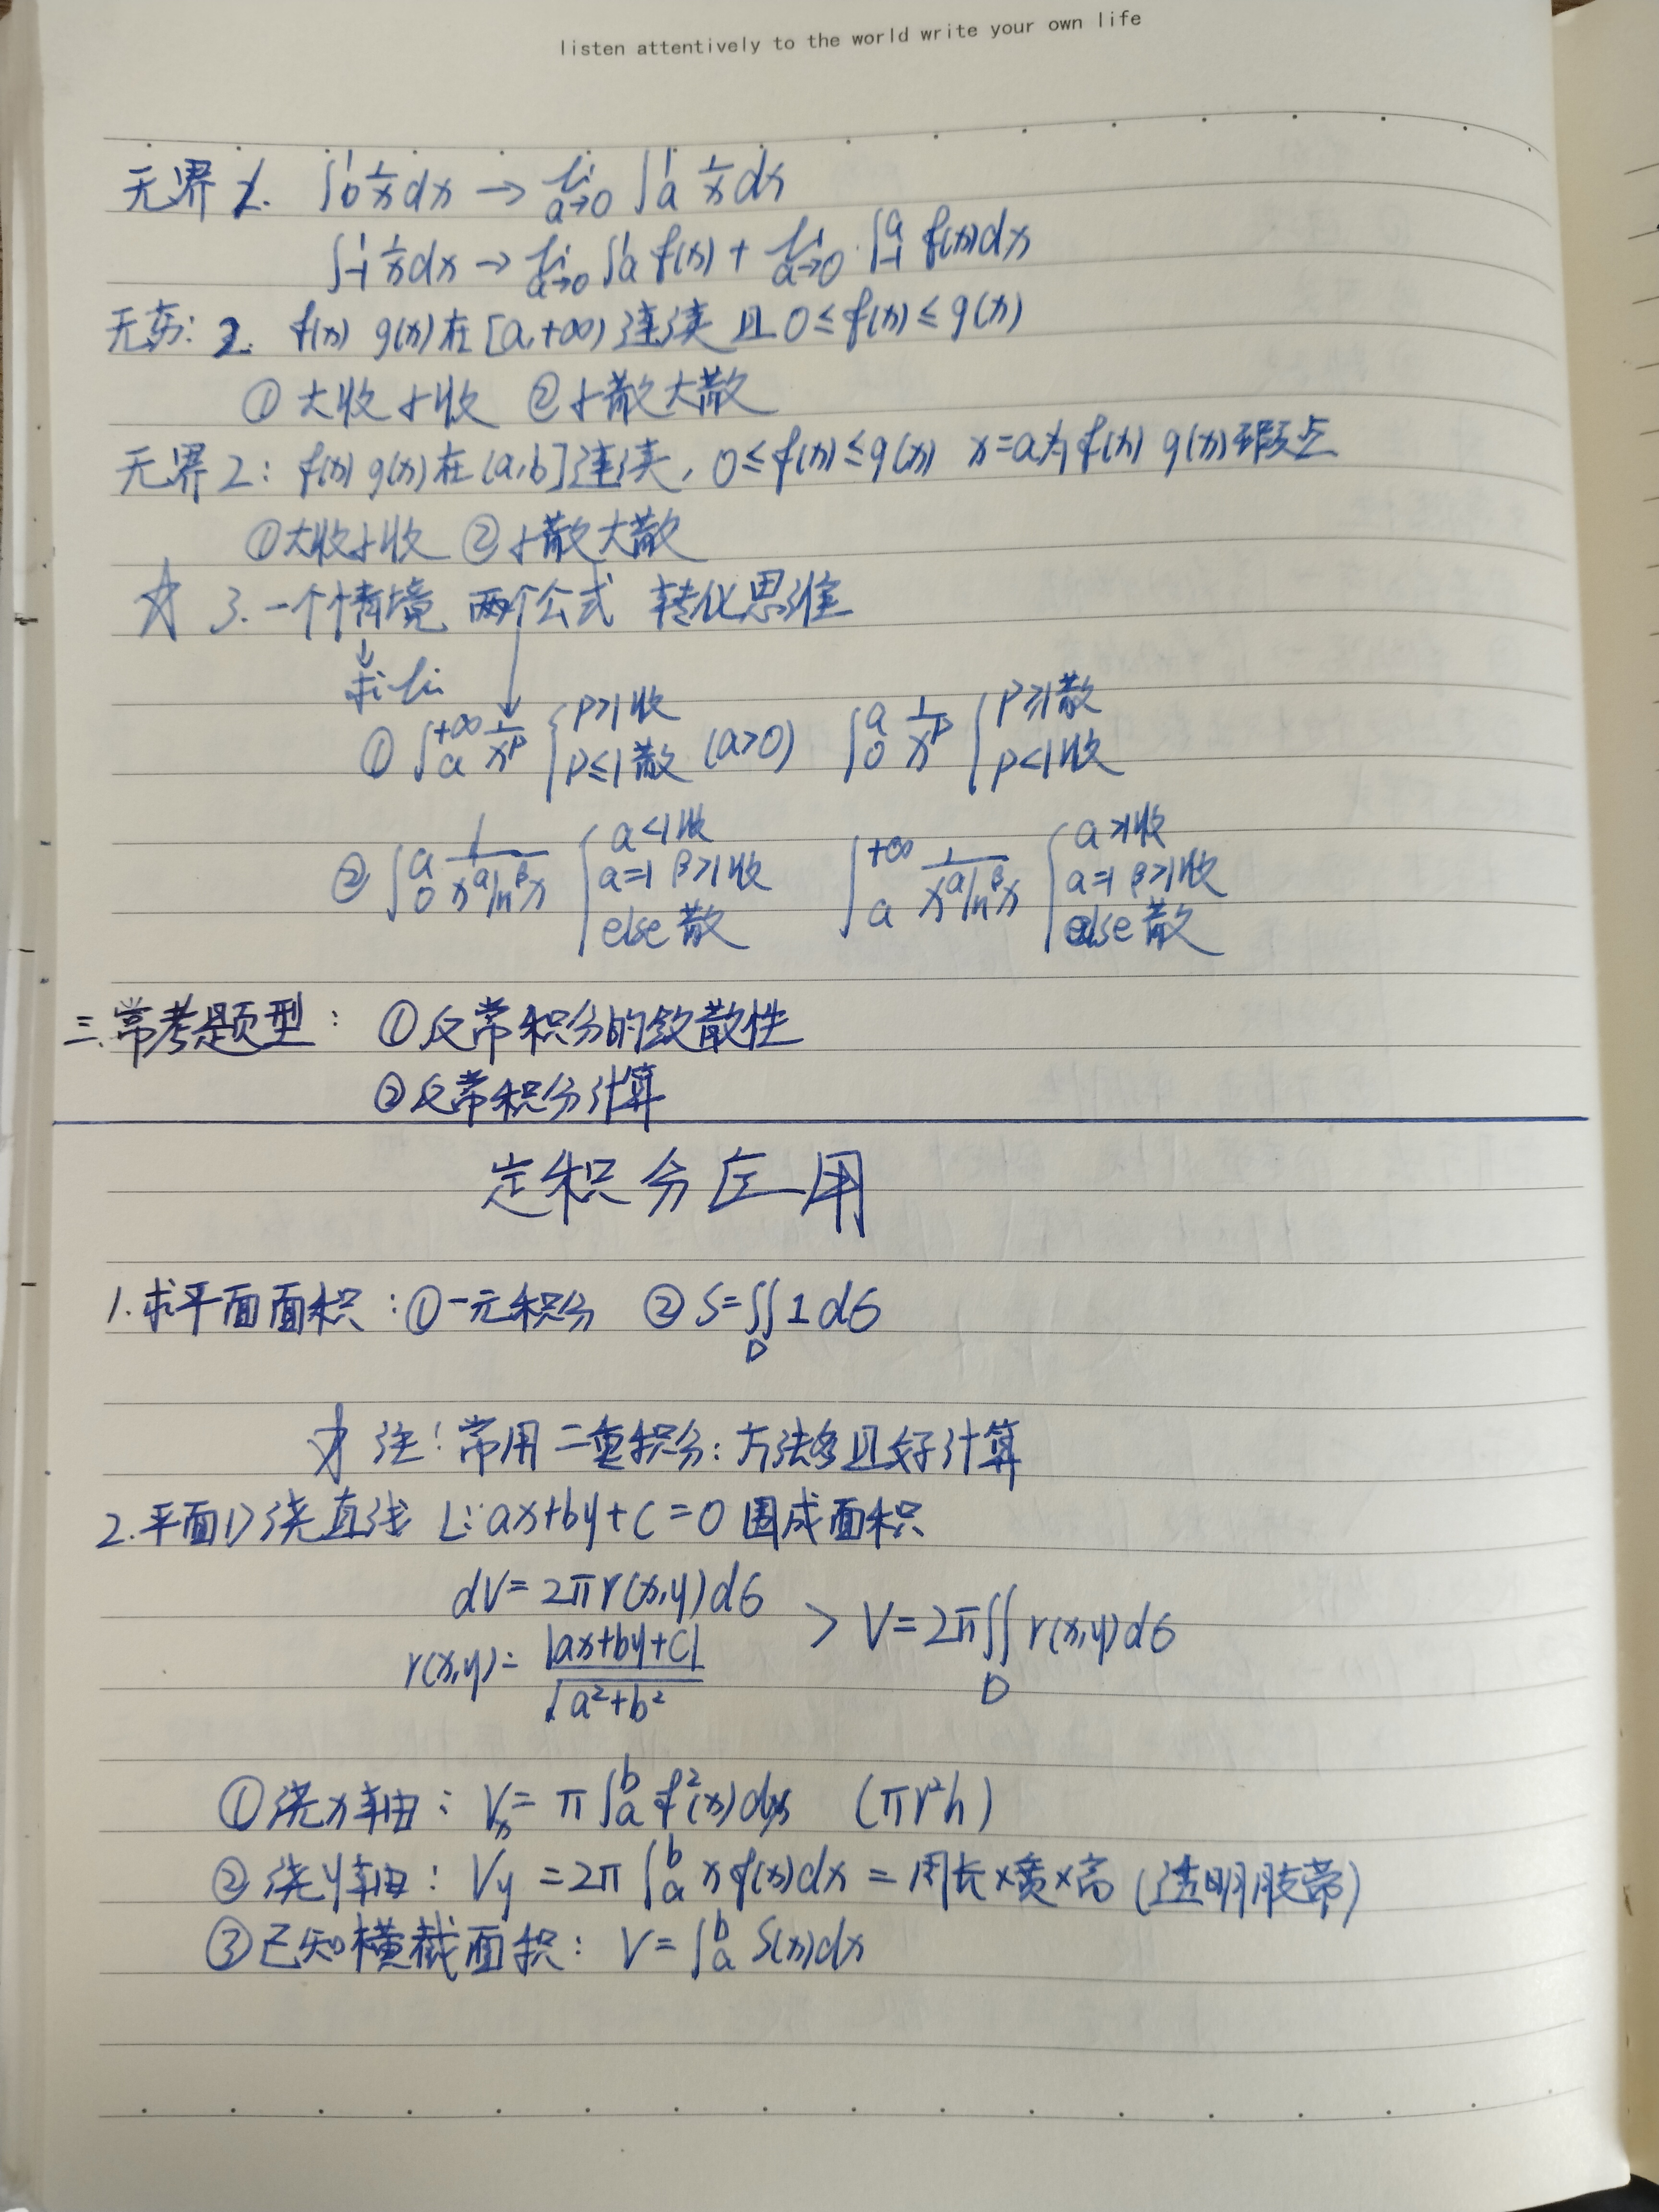 listen attentively to the world write your own life
无界 1. ∫₀¹ 1/x dx → lim a→0 ∫ₐ¹ 1/x dx
∫₋₁¹ 1/x dx → lim a→0 ∫ₐ¹ f(x) + lim a→0 ∫₋₁ᵃ f(x)dx
无穷: 2. f(x) g(x) 在 [a,+∞) 连续 且 0≤f(x)≤g(x)
① 大收小收 ② 小散大散
无界 2: f(x) g(x) 在 (a,b] 连续, 0≤f(x)≤g(x) x=a为f(x) g(x) 瑕点
①大收小收 ②小散大散
☆ 3. 一个情境 两个公式 转化思维
↓
求lim
① ∫ₐ^{+∞} 1/x^p { p>1 收 p≤1 散 (a>0) ∫₀^a 1/x^p { p≥1 散 p<1 收
② ∫₀^a 1/(x^a ln^β x) { a<1 收 a=1 β>1 收 else 散 ∫ₐ^{+∞} 1/(x^a ln^β x) { a>1 收 a=1 β>1 收 else 散
三.常考题型: ①反常积分的敛散性
②反常积分计算
定积分应用
1.求平面面积: ①一元积分 ② S=∬_D 1 dσ
☆ 注: 常用二重积分: 方法多且好计算
2.平面D绕直线 L: ax+by+c=0 围成面积
dV=2πr(x,y)dσ
r(x,y)= |ax+by+c|/√(a²+b²) > V=2π∬_D r(x,y)dσ
①绕x轴: Vₓ=π∫ₐᵇ f²(x)dx (πr²h)
②绕y轴: Vy=2π∫ₐᵇ x f(x)dx = 周长×宽×高 (透明胶带)
③已知横截面积: V=∫ₐᵇ S(x)dx